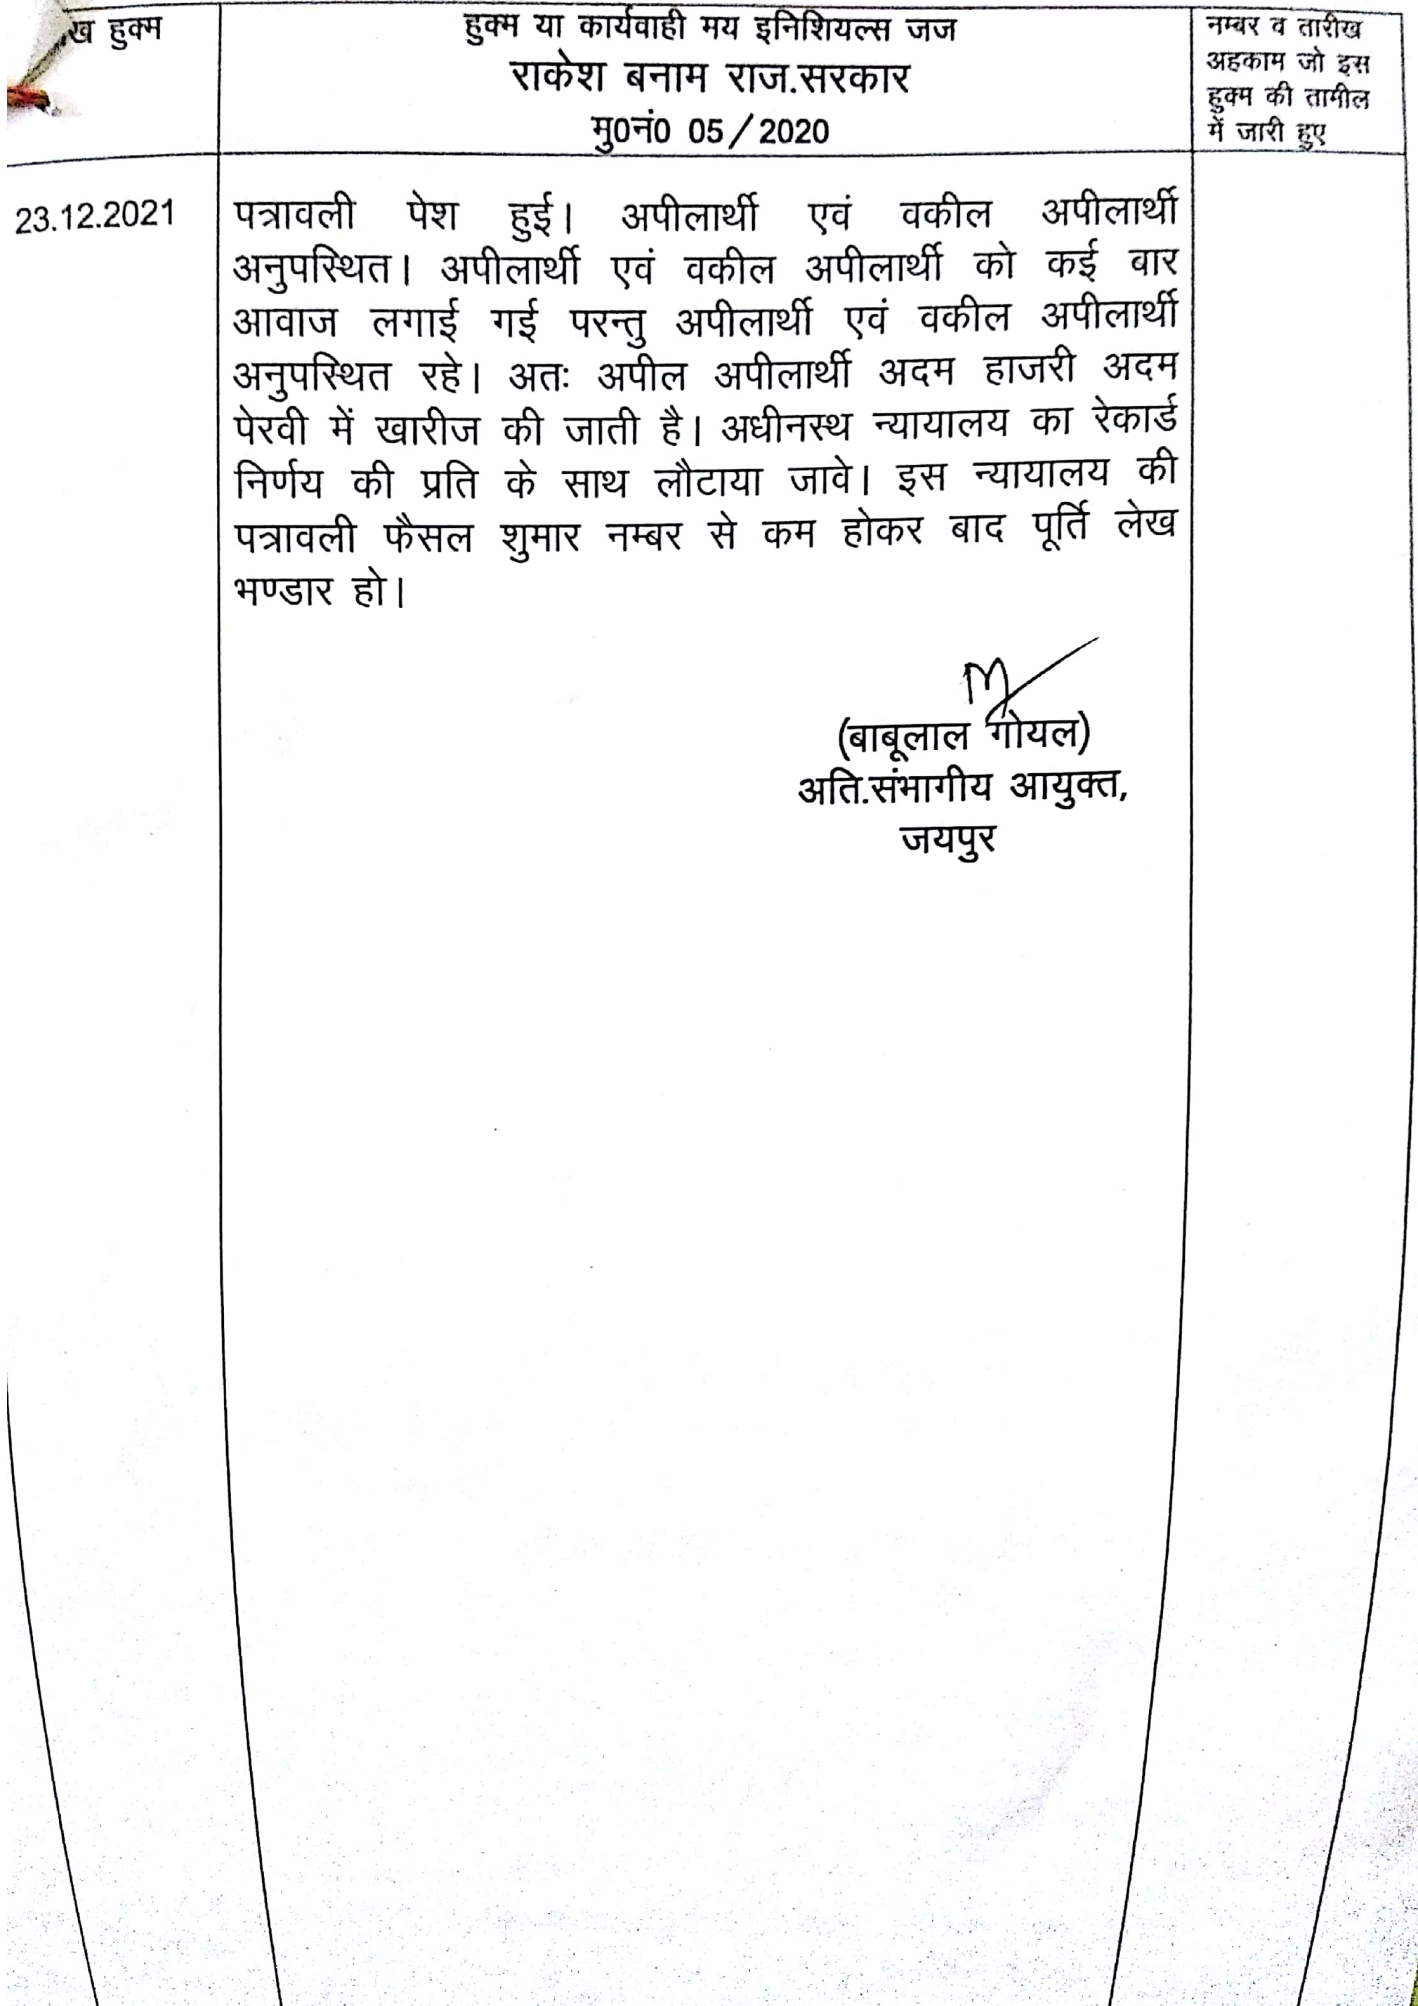 हुक्म
हुक्म या कार्यवाही मय इनिशियल्स जज
राकेश बनाम राज.सरकार
मु0नं0 05/2020
नम्बर व तारीख
अहकाम जो इस
हुक्म की तामील
में जारी हुए
23.12.2021
पत्रावली पेश हुई। अपीलार्थी एवं वकील अपीलार्थी
अनुपस्थित। अपीलार्थी एवं वकील अपीलार्थी को कई बार
आवाज लगाई गई परन्तु अपीलार्थी एवं वकील अपीलार्थी
अनुपस्थित रहे। अतः अपील अपीलार्थी अदम हाजरी अदम
पेरवी में खारीज की जाती है। अधीनस्थ न्यायालय का रेकार्ड
निर्णय की प्रति के साथ लौटाया जावे। इस न्यायालय की
पत्रावली फैसल शुमार नम्बर से कम होकर बाद पूर्ति लेख
भण्डार हो।
(बाबूलाल गोयल)
अति.संभागीय आयुक्त,
जयपुर